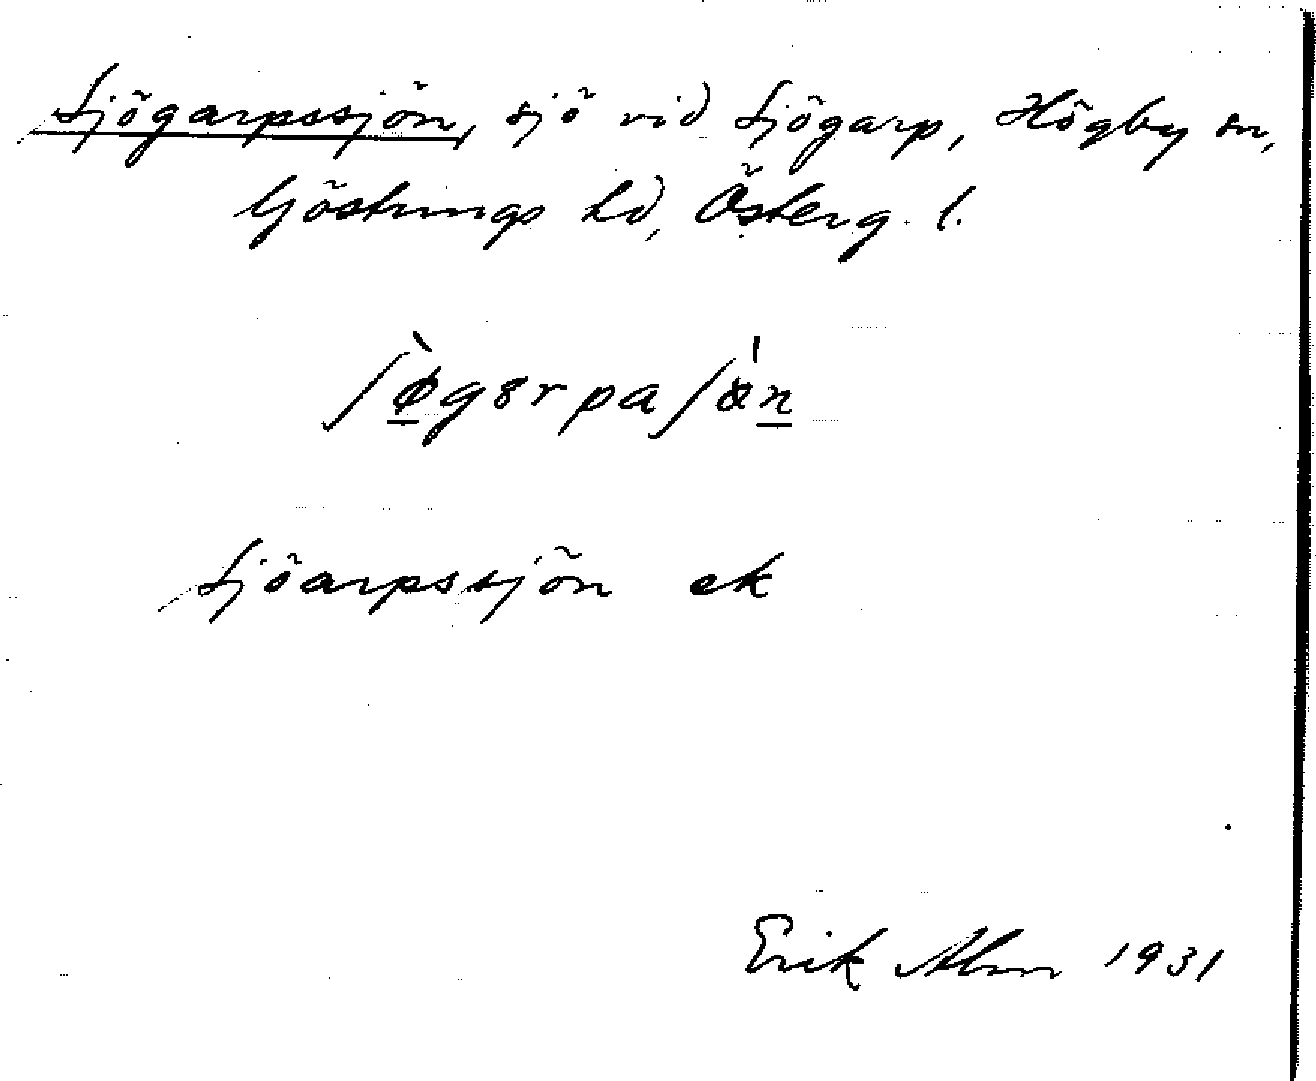 Sjögarpssjön, sjö vid Sjögarp, Högby sn,
Göstrings hd, Österg. l.
ʃø̀gərpaʃön
Sjöarpssjön ek
Erik Alm 1931